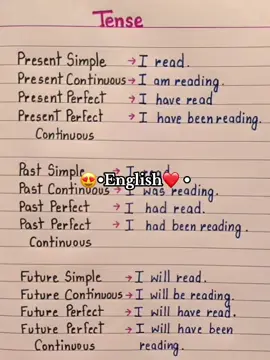 Tense
Present Simple → I read.
Present Continuous → I am reading.
Present Perfect → I have read
Present Perfect → I have been reading.
Continuous
Past Simple → I read.
😍•English❤️•
Past Continuous → I was reading.
Past Perfect → I had read.
Past Perfect → I had been reading.
Continuous
Future Simple → I will read.
Future Continuous → I will be reading.
Future Perfect → I will have read.
Future Perfect → I will have been
Continuous reading.